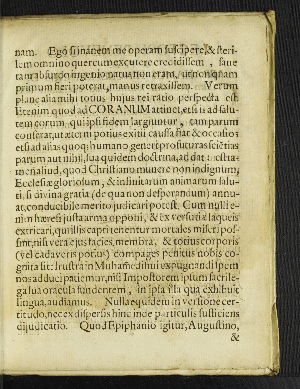 nam. Ego si inanem me operam suscipere, & steri-
lem omnino quercum excutere credidissem, sane
tam absurdo ingenio natus non eram, ut non quam
primum fieri poterat, manus retraxissem. Verum
plane alia mihi totius hujus rei ratio perspecta est
Etenim quod ad CORANUM attinet, etsi is ad salu-
tem eorum, qui ipsi fidem largiuntur, tam parum
conferat, ut æternæ potius exitii caussa fiat & occasio:
etsi ad alias quoq; humano generi profuturas scientias
parum aut nihil, sua quidem doctrina, ad
men aliud, quod Christiano munere non indignum,
Ecclesiæ gloriosum, & infinitarum animarum salu-
ti, si divina gratia (de qua non desperandum) annu-
at, conducibile merito judicari potest. Cum nulli e-
nim hæresi justa arma opponi, & ex versutiæ laqueis
extricari, qui illis capti tenentur mortales miseri pos-
sint, nisi vera ejus facies, membra, & totius corporis
(vel cadaveris potius) compages penitus nobis co-
gnita sit: frustra in Muhammedis expugnandi spem
nos adduci patiemur, nisi Impostorem ipsum sacrile-
ga sua oracula fundentem, in ipsa illa qua exhibuit
lingua, audiamus. Nulla equidem in versione cer-
titudo, nec ex dispersis hinc inde particulis sufficiens
dijudicatio. Quod Epiphanio igitur, Augustino,
&